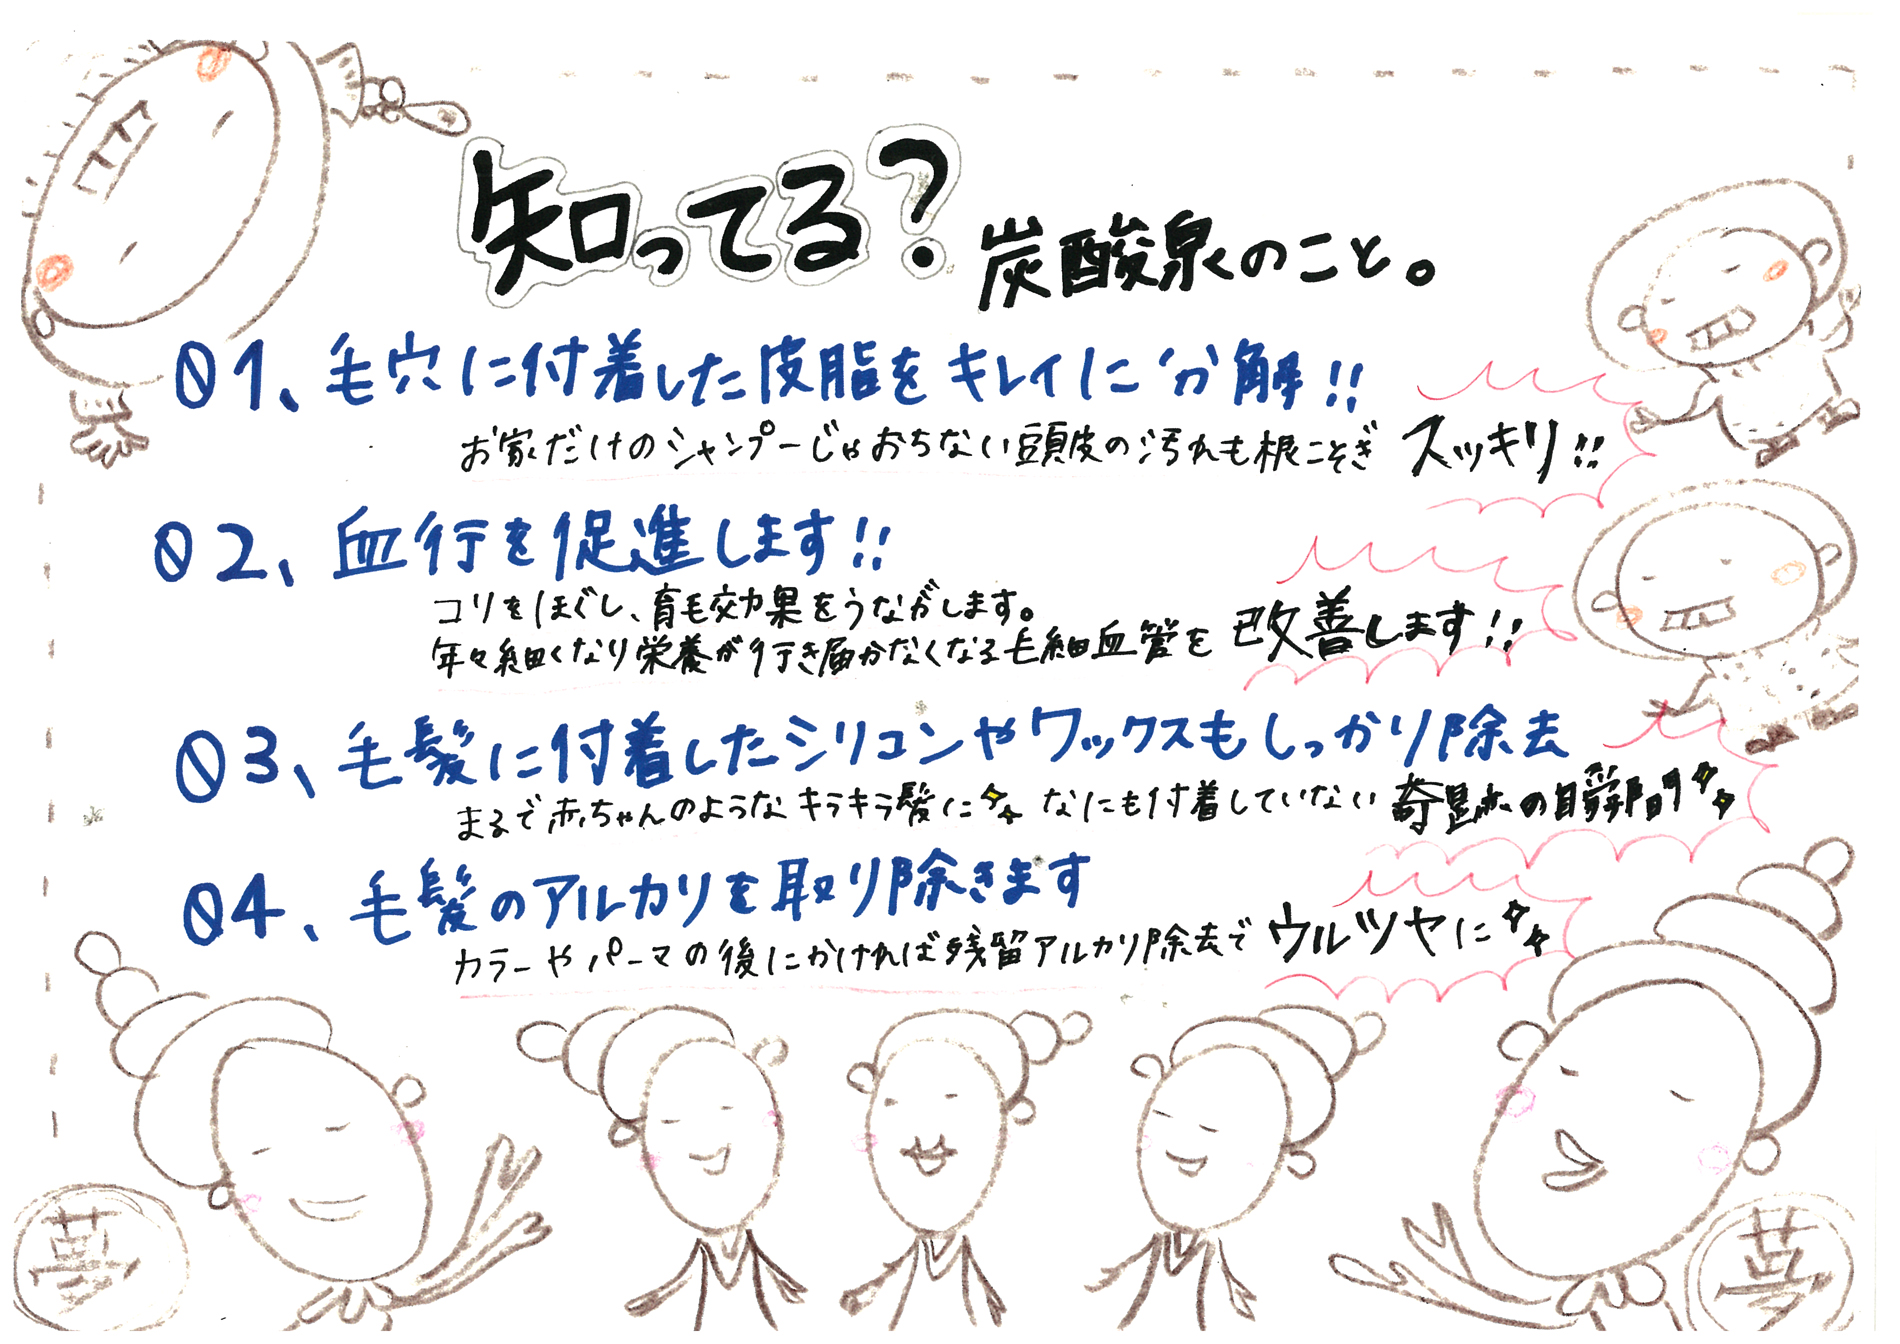 知ってる?炭酸泉のこと。
01、毛穴に付着した皮脂をキレイに分解!!
お家だけのシャンプーじゃおちない頭皮の汚れも根こそぎ スッキリ!!
02、血行を促進します!!
コリをほぐし、育毛効果をうながします。
年々細くなり栄養が行き届かなくなる毛細血管を 改善します!!
03、毛髪に付着したシリコンやワックスもしっかり除去
まるで赤ちゃんのようなキラキラ髪に なにも付着していない 奇跡の瞬間
04、毛髪のアルカリを取り除きます
カラーやパーマの後にかければ残留アルカリ除去で ウルツヤに
夢
夢